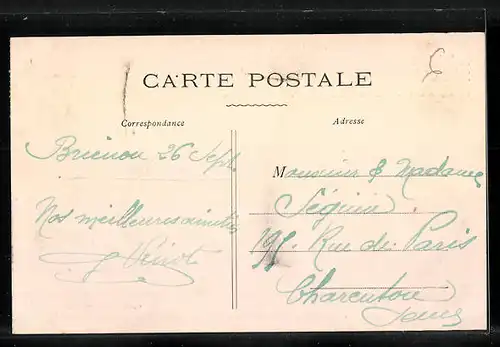 CARTE POSTALE
Correspondance
Adresse
Brienon 26 Sept.
Nos meilleures amitiés
Monsieur & Madame
Séguin
Rue de Paris
Charenton
Seine